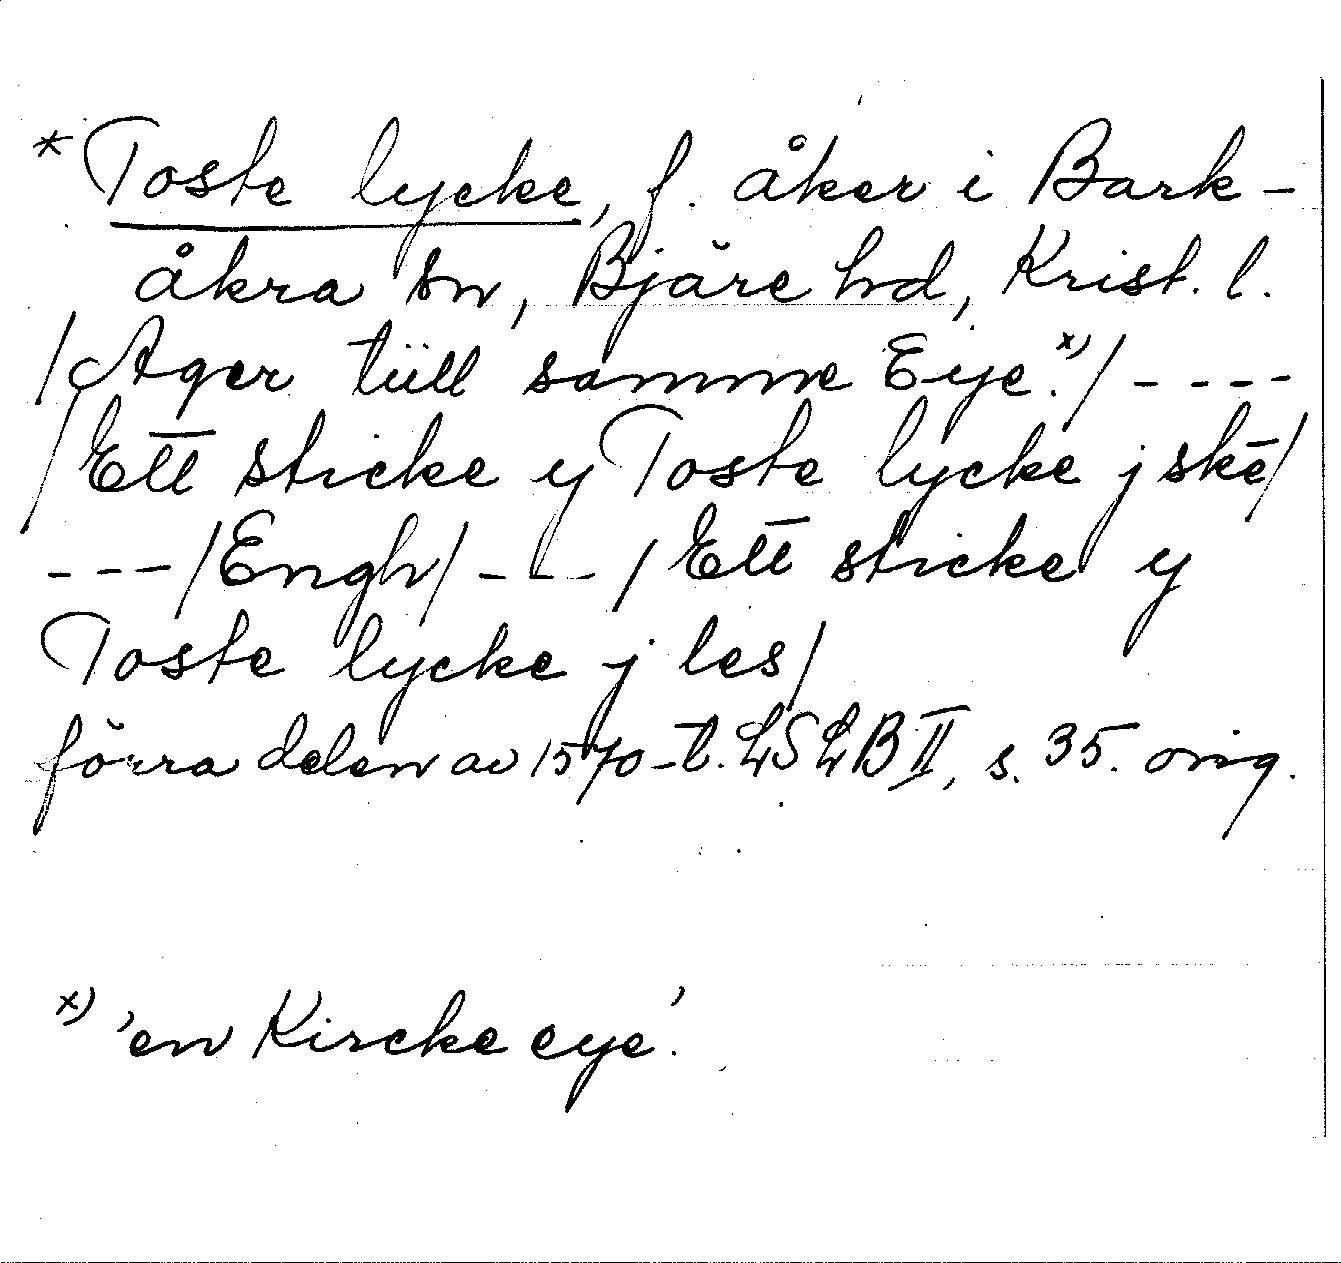 * Toste lycke, f. åker i Bark-
åkra sn, Bjäre hd, Krist. l.
/Ager tüll samme Eye.x)/ - - - -
/Ett sticke y Toste lycke j skē/
- - - /Engh/ - - - /Ett sticke y
Toste lycke j les/
förra delen av 1570-t. LSLB II, s. 35. orig.
x) 'en Kircke eye'.